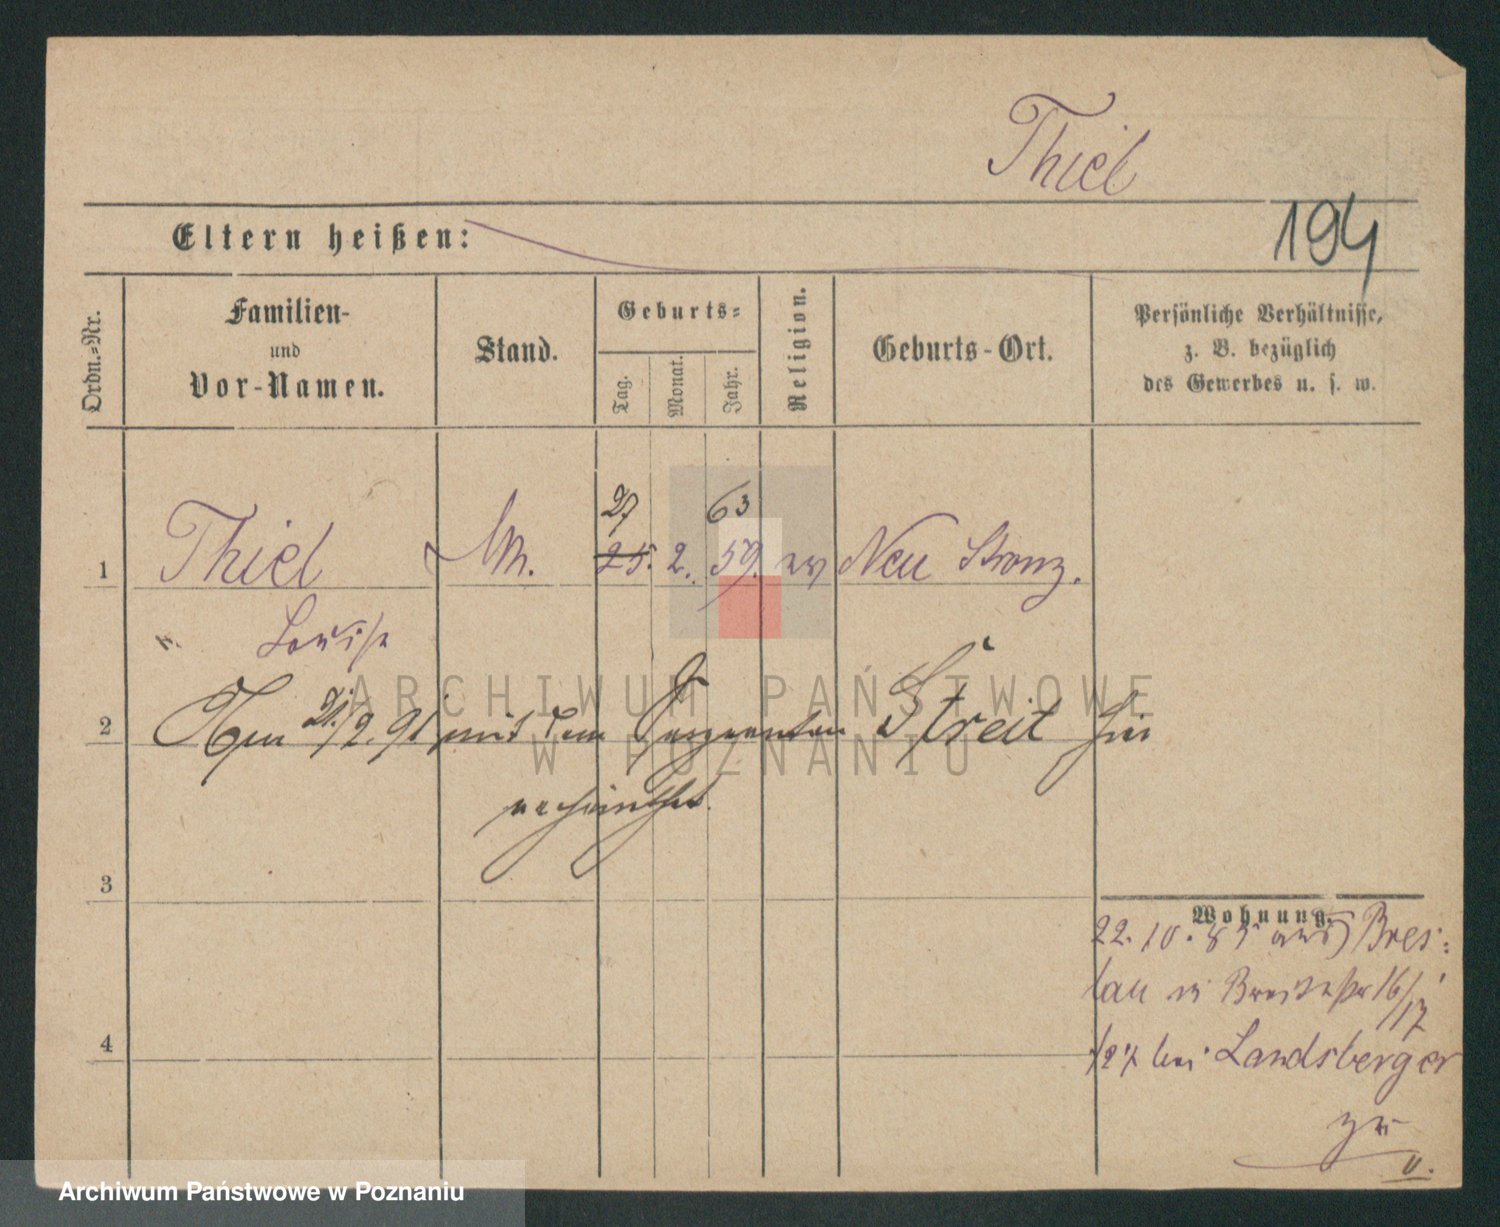 Thiel
194
Eltern heißen:
Ordn.=Nr.
Familien-
und
Vor-Namen.
Stand.
Geburts=
Tag.
Monat.
Jahr.
Religion.
Geburts-Ort.
Persönliche Verhältnisse,
z. B. bezüglich
des Gewerbes u. s. w.
27 63
1 Thiel 25. 2. 59. ev Neu Stronz.
Louise
ARCHIWUM PAŃSTWOWE
W POZNANIU
2 21/2. 91 mit dem Sergeanten Streit hier
verheirathet.
3
Wohnung.
22. 10. 85 aus Bres=
lau in Breitestr 16/17
4 bei Landsberger
zu
u.
Archiwum Państwowe w Poznaniu